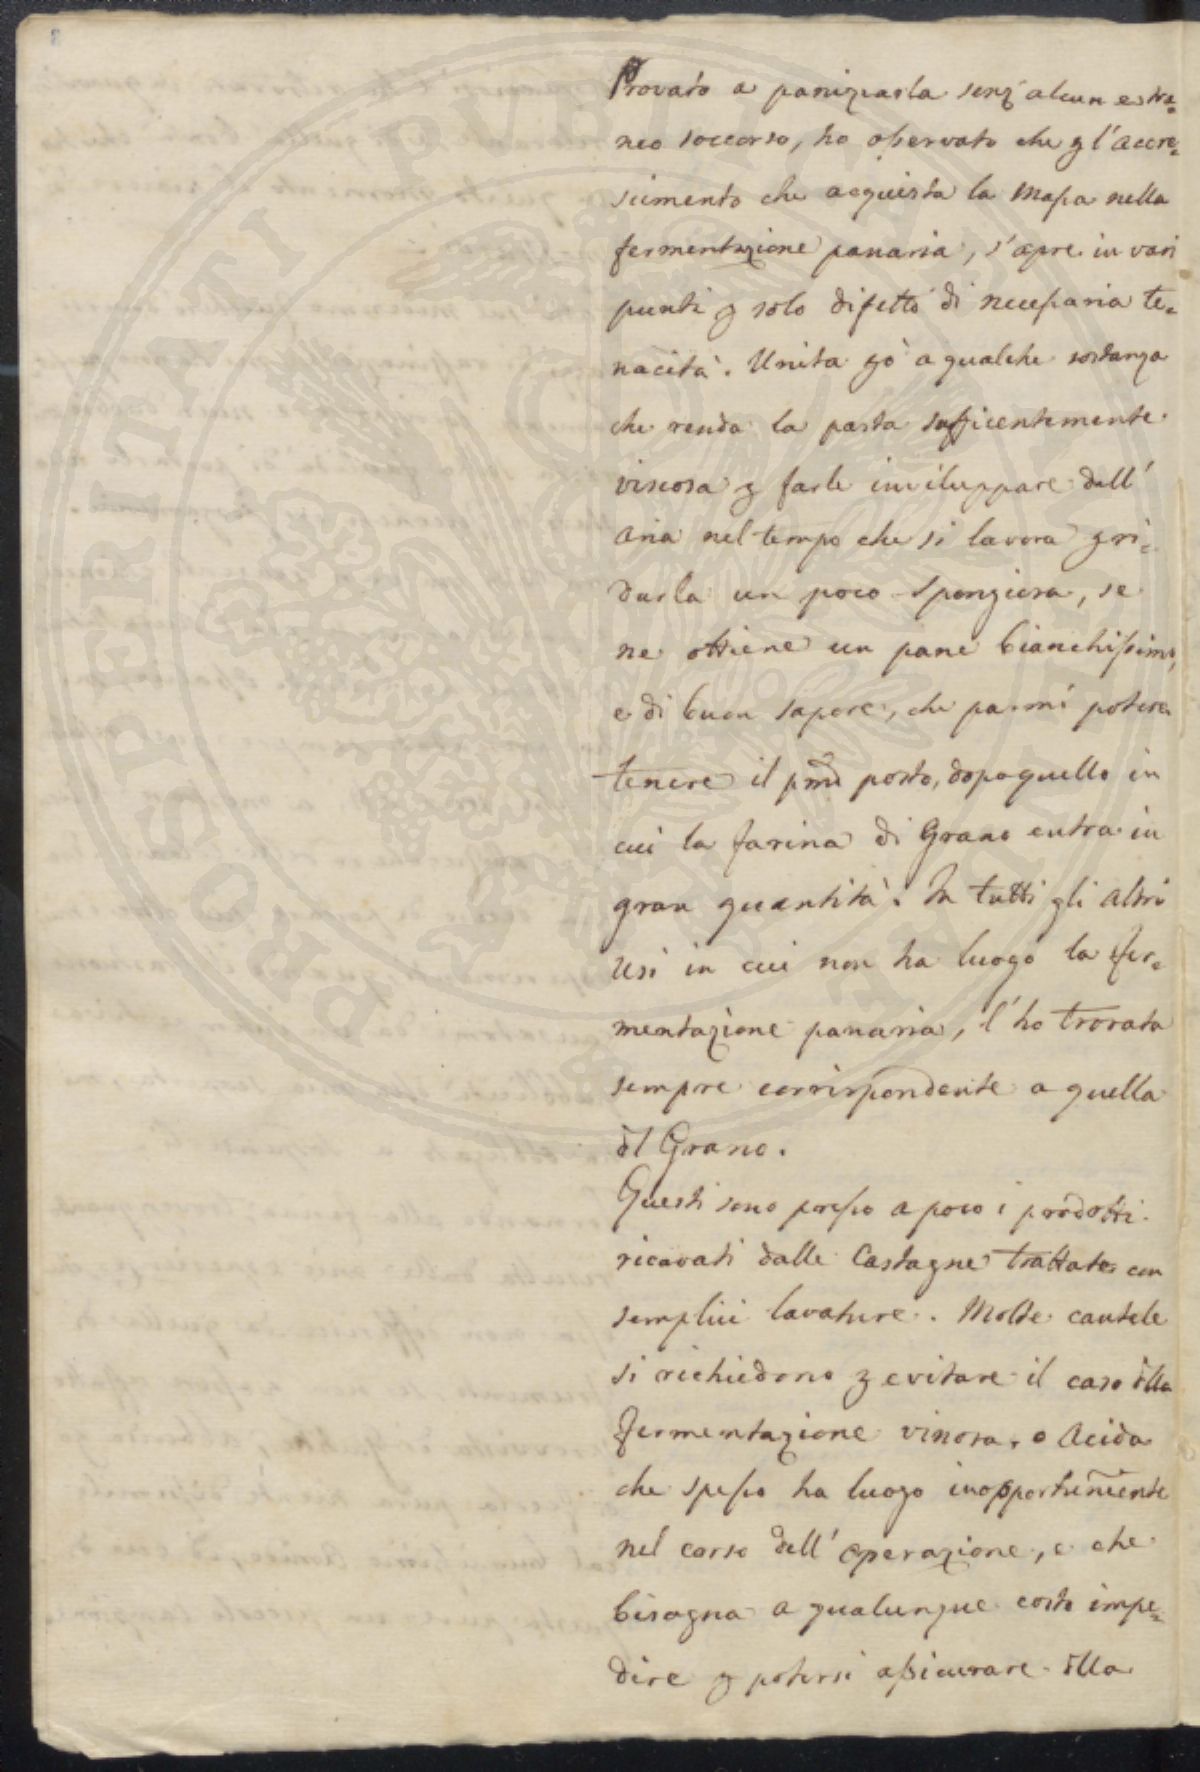 Provato a panizzarla senz'alcun estra=
neo soccorso, ho osservato che p l'accre=
scimento che acquista la Massa nella
fermentazione panaria, s'apre in vari
punti p solo difetto di necessaria te=
nacità. Unita pò a qualche sostanza
che renda la pasta sufficentemente
viscosa p farle inviluppare dell'
aria nel tempo che si lavora p ri=
durla un poco spongiosa, se
ne ottiene un pane bianchissimo,
e di buon sapore, che parmi potere
tenere il pmo posto, dopo quello in
cui la farina di Grano entra in
gran quantità. In tutti gli altri
usi in cui non ha luogo la fer=
mentazione panaria, l'ho trovata
sempre corrispondente a quella
dl Grano.
Questi sono presso a poco i prodotti
ricavati dalle Castagne trattate con
semplici lavature. Molte cautele
si richiedono p evitare il caso dlla
fermentazione vinosa, o Acida
che spesso ha luogo inopportunemente
nel corso dell'operazione, e che
bisogna a qualunque costo impe=
dire p potersi assicurare dlla
PROSPERITATI PUBLICAE